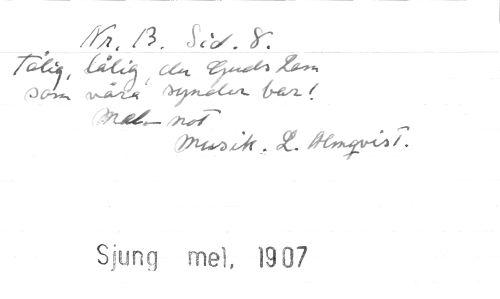 Nr. 13. Sid. 8.
Tålig, tålig, du Guds Lam
som våra synder bar!
Mel. not
Musik. L. Almqvist.
Sjung mel, 1907